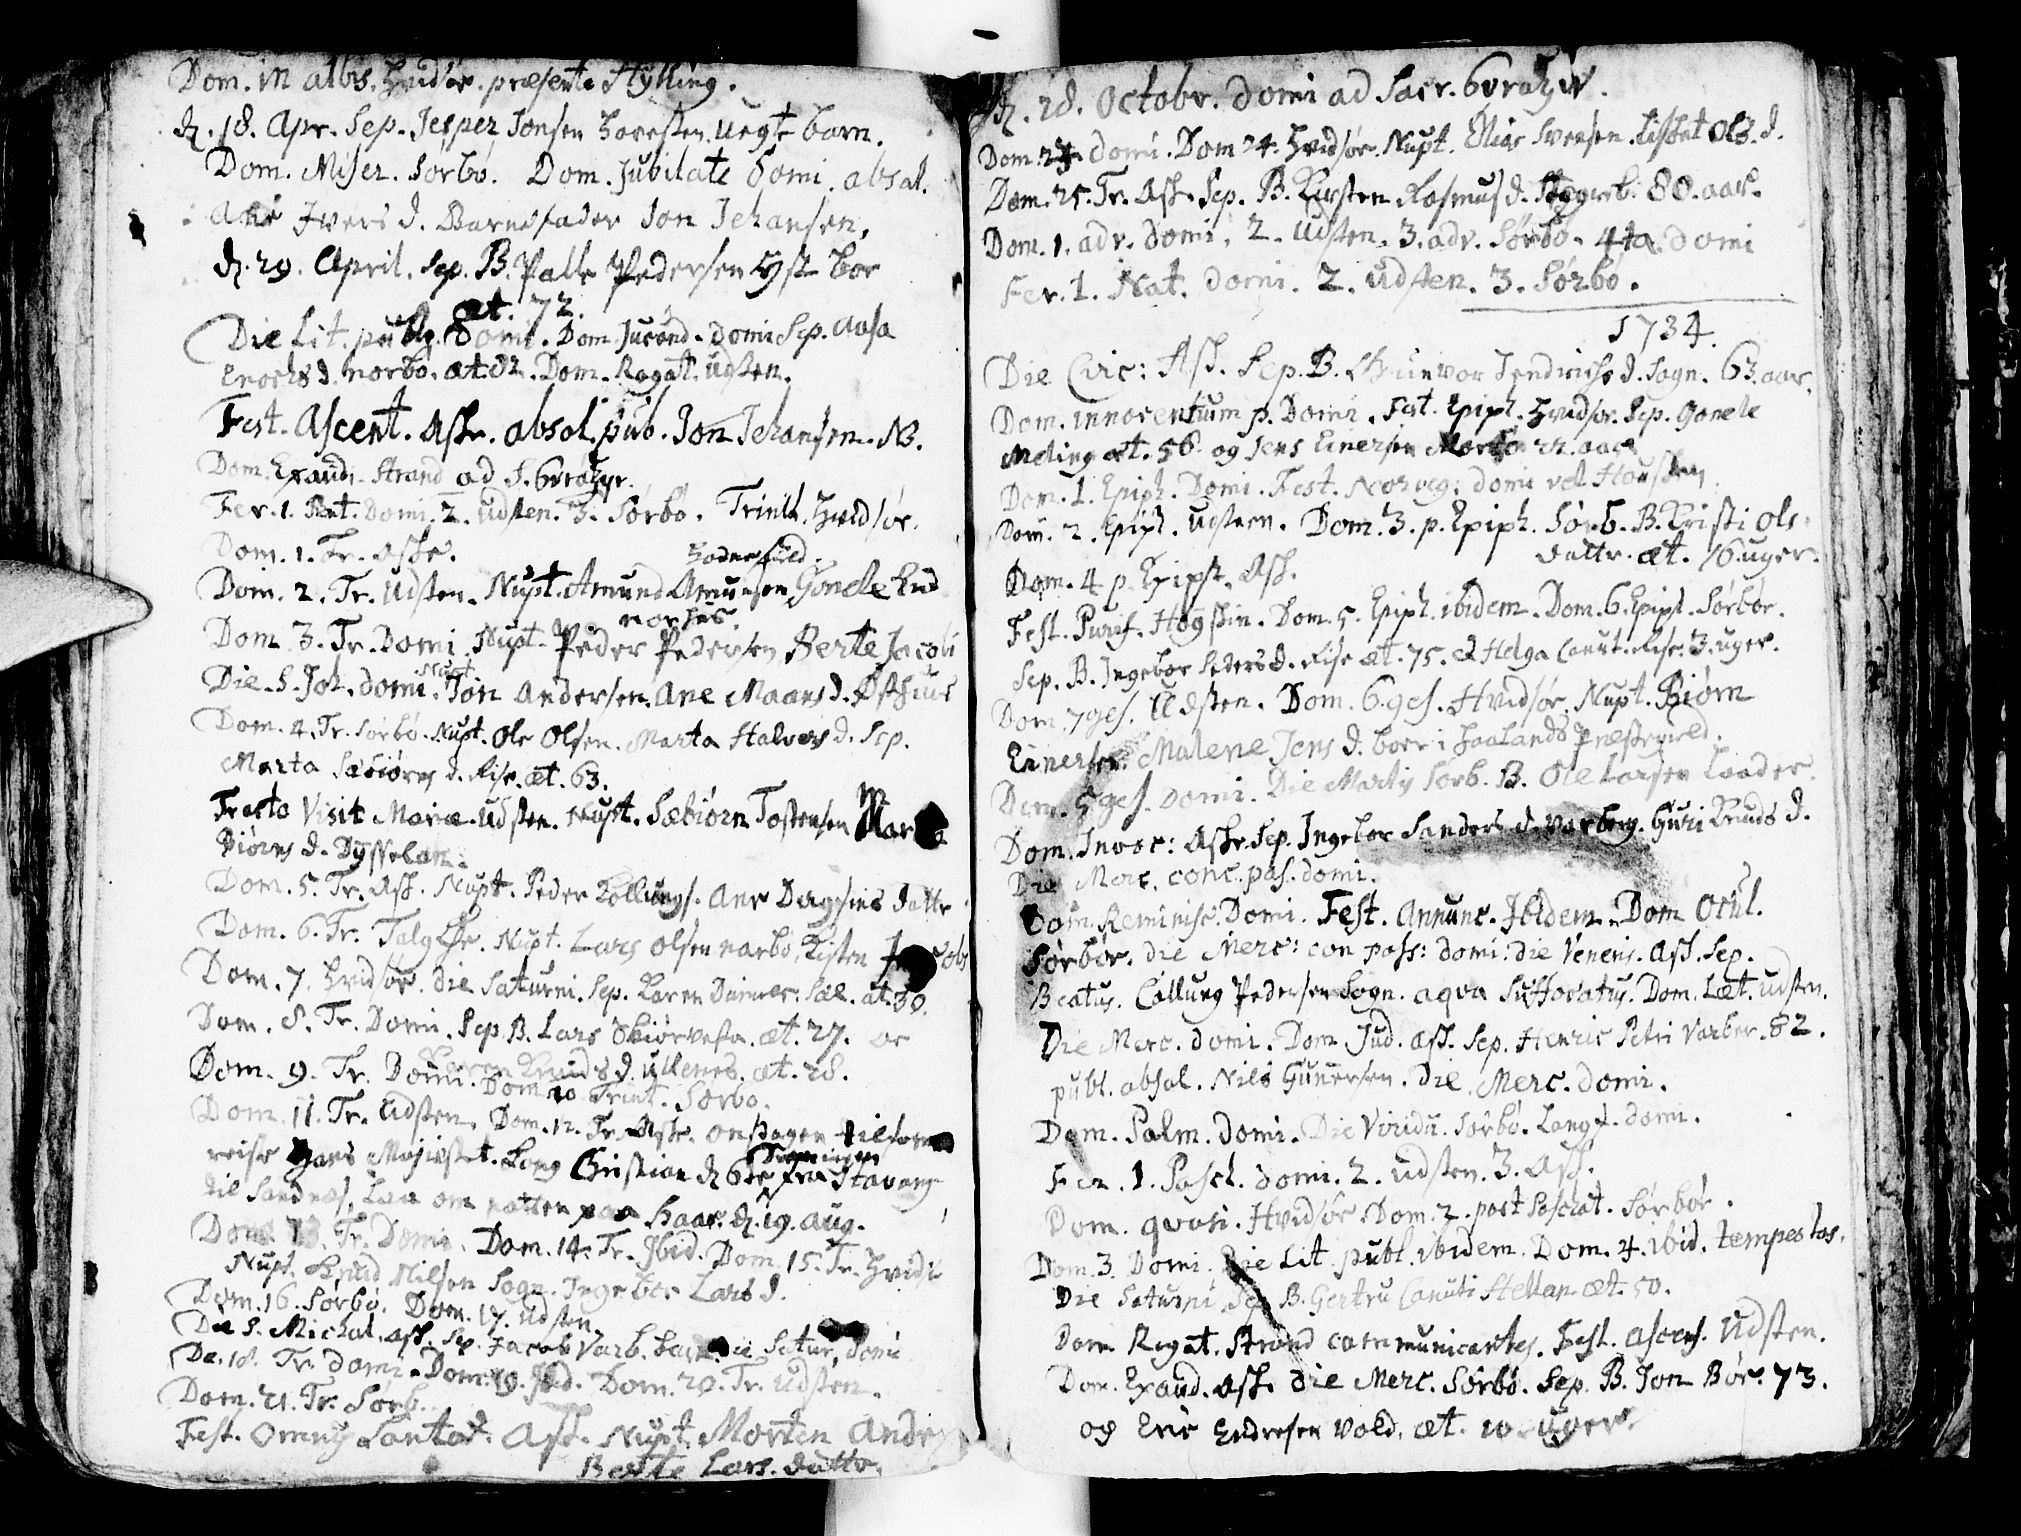 Dom. in albis. Hvidsøe. præsente Hylling.
d. 18. Apr. Sep. Jesper Jonsen uegte barn.
Dom. Miser. Sørbø. Dom. Jubilate domi. absol.
Ane Ivers d. Barnefader Jon Johansen.
d. 29. April. Sep. B. Palle Pedersen boe
æt. 72.
Die Lit. publ. domi. Dom. Jucund. domi Sep. Aasa
Enochs d. nørbø. æt. 82. Dom. Rogat. udsten.
Fest. Ascent. Aske. absol. pub. Jon Johansen. NB.
Dom. Exaudi. Strand ad S.
Fer. 1. Pent. Domi. 2. udsten. 3. Sørbø. Trinit. Hvidsøe.
Dom. 1. Tr. Aske.
Dom. 2. Tr. Udsten. Nupt. Amund Amunsen Gonele Knud
Dom. 3. Tr. Domi. Nupt. Peder Pedersen Berte Jacobi
Die S. Joh. domi. Nupt. Jon Andersen. Ane Maans d. Østhuus
Dom. 4. Tr. Sørbø. Nupt. Ole Olsen. Marta Halvors d. Sep.
Marta Sæbiørns d. Rise. æt. 63.
Festo Visit Mariæ. Udsten. Nupt. Sæbiørn Tostensen
Biørns d. Dysseland.
Dom. 5. Tr. Ask. Nupt. Peder Ane datte
Dom. 6. Tr. Talg Nupt. Lars Olsen nørbø. Kisten
Dom. 7. Hvidsøe. die Saturni. Sep. Karen æt. 30.
Dom. 8. Tr. Domi. Sep. B. Lars æt. 27. oc
Knuds d. ullenes. æt. 28.
Dom. 9. Tr. Domi. Dom 10 Trinit. Sørbø.
Dom. 11. Tr. Udsten. Dom. 12. Tr. Aske. onsdagen
reiste Hans Majestet. Kong Christian d 6te fra Stavang
til Sandnæs, Laa om natten paa Haar. d. 19. Aug.
Dom. 13. Tr. Domi. Dom. 14. Tr. Ibid. Dom. 15. Tr. Hvids
Nupt. Knud Nilsen Sogn. Ingebor Lars d.
Dom. 16. Sørbø. Dom. 17. Udsten
Die S. Michal. Ask. Sep. Jacob Varb. die Satur. domi
Do. 18. Tr. domi. Dom. 19. Ibid. Dom. 20. Tr. Udsten.
Dom. 21. Tr. Sørb.
Fest. Omny Sanctor. Ask. Nupt. Morten Anders
Berte Lars. datte.
d. 28. Octobr. domi ad Sacr.
Dom. 23. domi. Dom 24. Hvidsøe. Nupt. Elias Svensen. Ols d.
Dom. 25. Tr. Ask. Sep. B. Kirsten Rasmus d. 80. aar.
Dom. 1. adv. domi. 2. Udsten. 3. adv. Sørbø. 4ta. domi
Fer. 1. Nat. domi. 2. Udsten. 3. Sørbø.
1734.
Die Circ: Ask. Sep. B. Gunvor Hendrichs d. Sogn. 63. aar.
Dom. innocentium p. Domi. Fest. Epiph. Hvidsøe. Sep. Gonele
Meling æt. 56 og Jens Einersen 22. aar
Dom. 1. Epiph. Domi. Fest. Norveg: domi ved Housken
Dom. 2. Epiph. Udsten. Dom. 3. p. Epiph. Sørb. B. Kristi Ols
datte. æt. 16. uger.
Dom. 4 p. Epiph. Ask.
Fest. Purif. Dom. 5. Epiph. ibidem. Dom. 6. Epiph. Sørbøe.
Sep. B. Ingebor Peders d. Rise æt. 75. & Helga Canut. Rise. 3. uger.
Dom. 7ges. Udsten. Dom. 6.ges. Hvidsøe. Nupt. Biørn
Einersen. Malene Jens d. boer i Haalands Præstegield.
Dom. 5ges. Domi. Die Martij Sørb. B. Ole Larsen
Dom. Invoc: Aske. Sep. Ingebor Sanders d. Varberg. Guri Knuds d.
Die Merc. conc. pas. domi.
Dom. Reminisc. Domi. Fest. Annunc. Ibidem. Dom Ocul.
Sørbøe. die Merc: con pass: domi. die Veneris. Ask. Sep.
Beatus. Collung Pedersen Sogn. aqva suffocatus. Dom. Læt. Udsten.
Die Merc. domi. Dom Jud. Ask. Sep. Henric Petri Varber. 82.
publ. absol. Nils Gunersen. Die Merc. domi.
Dom. Palm. domi. Die Viridu. Sørbø. Langf. domi.
Fer. 1. Pasch. domi. 2. Udsten. 3. Ask.
Dom. qvasi. Hvidsøe. Dom. 2. post Paschat. Sørbøe.
Dom. 3. Domi. Die Lit publ. ibidem. Dom. 4. ibid. tempestas.
Die Saturni Sep B. Gertru Canuti Helland. æt. 50.
Dom Rogat. Strand communicantes. Fest. ascens. Udsten.
Dom. Exaud. Ask. die Merc. Sørbø. Sep. B. Jon Bøe. 73.
og Eric Endresen Vold. æt. 10 uger.